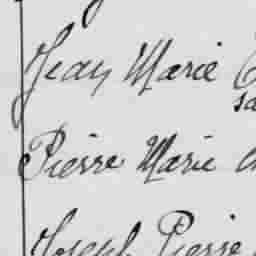 Jean Marie
Pierre Marie
Joseph Pierre